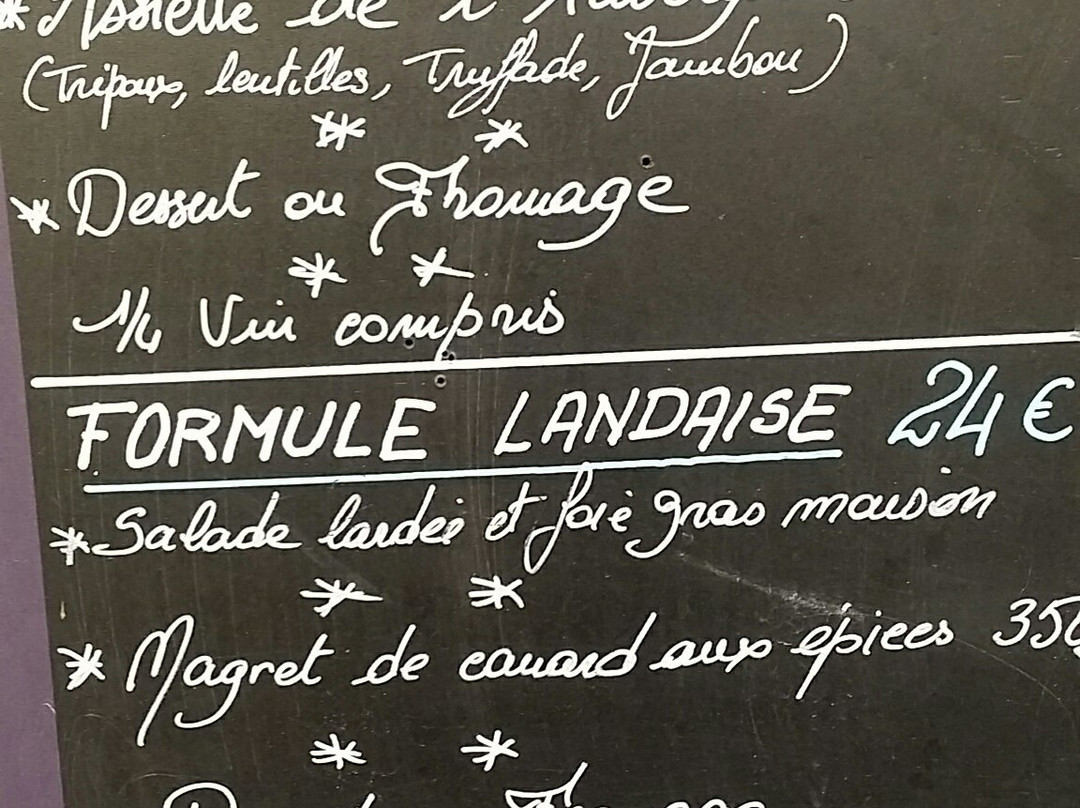 * Assiette de l'Auverg
(Tripoux, lentilles, Truffade, Jambon)
* *
* Dessert ou Fromage
* *
1/4 Vin compris
FORMULE LANDAISE 24 €
* Salade lardée et foie gras maison
* *
* Magret de canard aux épices 350
* *